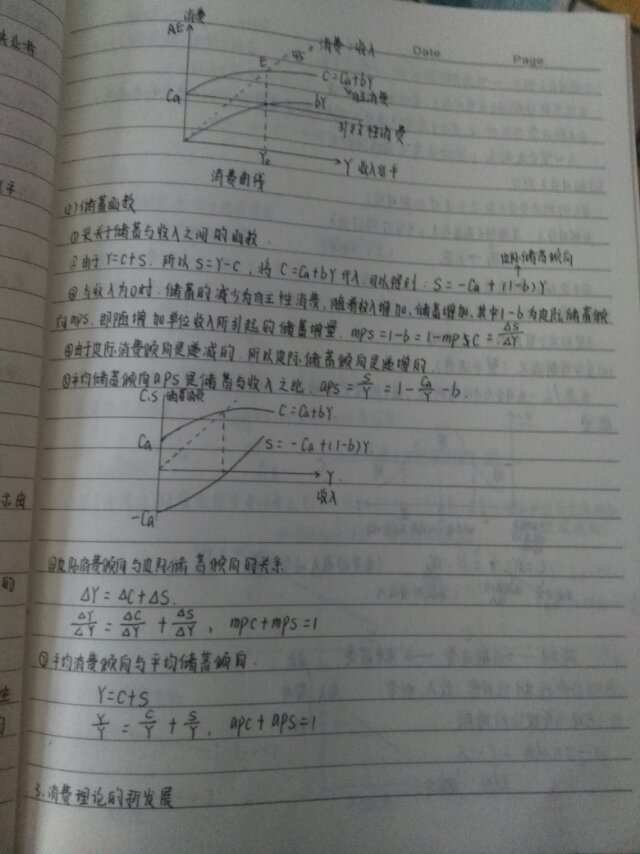 Date
Page
消费
AE
45°
消费=收入
E
C=Ca+bY
自主消费
Ca
bY
引致性消费
Y₀
Y 收入水平
消费曲线
(2)储蓄函数
①是关于储蓄与收入之间的函数.
边际储蓄倾向
②由于Y=C+S. 所以S=Y-C, 将C=Ca+bY代入.可以得到: S=-Ca+(1-b)Y.
③当收入为0时.储蓄的减少为自主性消费,随着收入增加,储蓄增加,其中1-b为边际储蓄倾
向mps.即随增加单位收入所引起的储蓄增量. mps=1-b=1-mpc=ΔS/ΔY.
④由于边际消费倾向是递减的.所以边际储蓄倾向是递增的.
⑤平均储蓄倾向aps是储蓄与收入之比. aps=S/Y=1-Ca/Y-b.
C.S
储蓄消费
C=Ca+bY
Ca
S=-Ca+(1-b)Y.
Y
收入
-Ca
⑥边际消费倾向与边际储蓄倾向的关系
ΔY=ΔC+ΔS.
ΔY/ΔY=ΔC/ΔY+ΔS/ΔY, mpc+mps=1
⑦平均消费倾向与平均储蓄倾向.
Y=C+S
Y/Y=C/Y+S/Y. apc+aps=1
3.消费理论的新发展